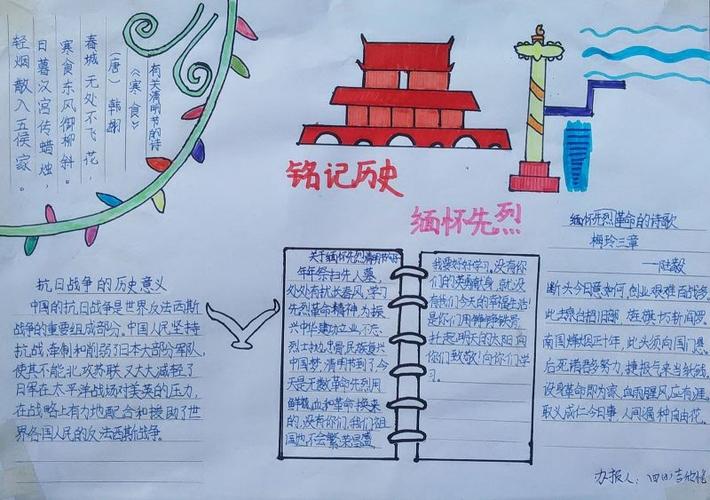 有关清明节的诗
《寒食》
（唐）韩翃
春城无处不飞花，
寒食东风御柳斜。
日暮汉宫传蜡烛，
轻烟散入五侯家。
铭记历史
缅怀先烈
抗日战争的历史意义
中国的抗日战争是世界反法西斯
战争的重要组成部分，中国人民坚持
抗战，牵制和削弱了日本大部分军队，
使其不能北攻苏联，又大大减轻了
日军在太平洋战场对美英的压力，
在战略上有力地配合和援助了世
界各国人民的反法西斯战争。
关于缅怀先烈清明节
年年祭扫先人墓，
处处有扰长春风，学习
先烈革命精神，大振
兴中华建功立业，不忘
烈士
梦，清明节到了，今
天是无数革命先烈用
鲜血和革命换来
的，没有你们，我们祖
国也不会繁荣昌盛
我要好好学习，没有你
们的英勇献身，就没
有我们今天的幸福生活！
是你们用铮铮铁骨
托起明天的太阳，向
你们致敬！向你们学
习。
缅怀先烈革命的诗歌
梅玲三章
—陆毅
断头今日意如何，创业艰难百战多。
此去泉台招旧部，旌旗
南国烽烟正十年，此头须向国门悬。
后死诸君多努力，捷报飞来当纸钱。
设身革命即为家，血雨腥风应有涯。
取义成仁今日事，人间遍种自由花。
办报人：四